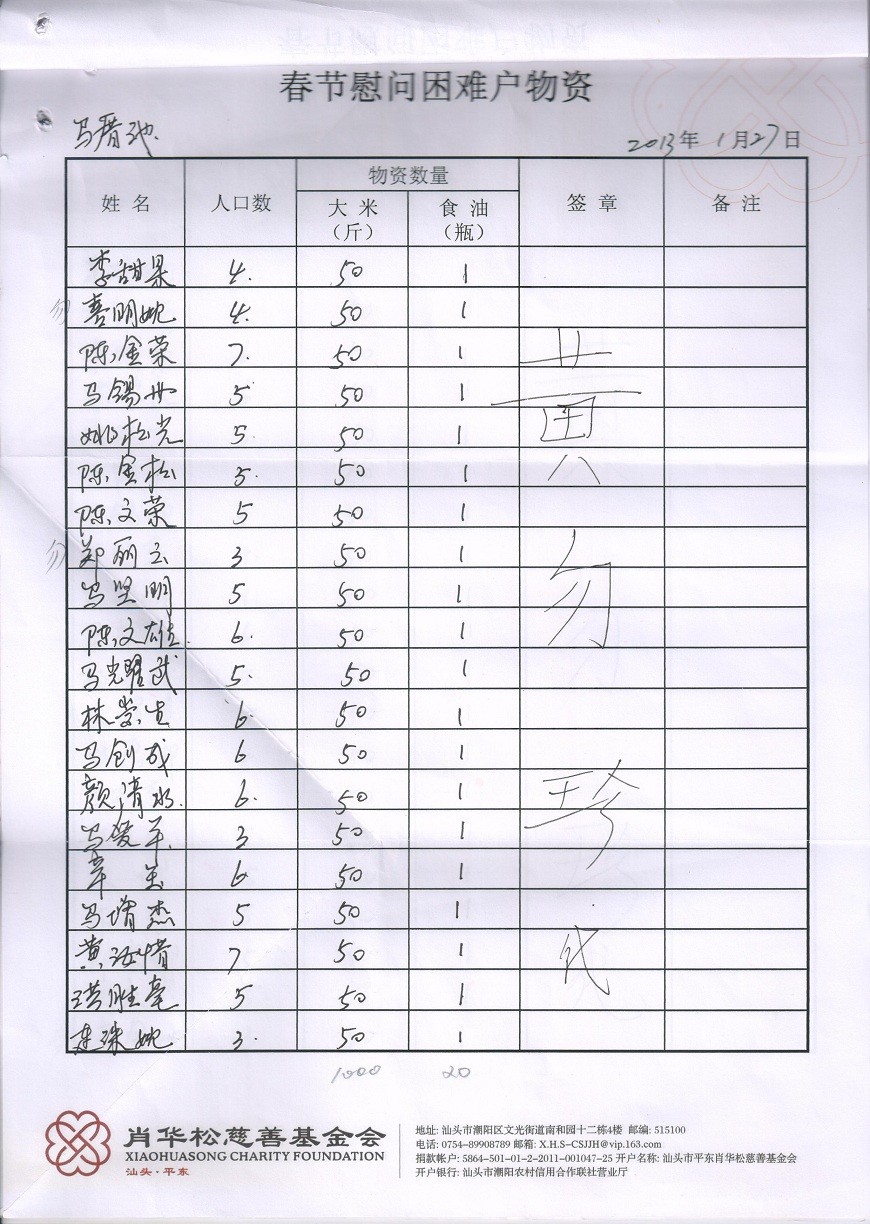 春节慰问困难户物资
2013年 1月27日
姓 名 人口数 物资数量 签 章 备 注
大 米 食 油
(斤) (瓶)
李甜果 4. 50 1
喜明婉 4. 50 1
陈金荣 7. 50 1
马锡 5 50 1
姚松光 5. 50 1
陈金松 3. 50 1
陈文荣 5 50 1
勿 郑丽云 3 50 1
马坚明 5 50 1
陈文雄. 6. 50 1
马光耀武 5. 50 1
林崇 6. 50 1
马创成 6 50 1
颜清水. 6. 50 1
马爱 3 50 1
6 50 1
马 杰 5 50 1
黄 惜 7 50 1
洪胜 5 50 1
珠婉 3. 50 1
黄
勿
珍
代
1000 20
肖华松慈善基金会
XIAOHUASONG CHARITY FOUNDATION
汕头·平东
地址: 汕头市潮阳区文光街道南和园十二栋4楼 邮编: 515100
电话: 0754-89908789 邮箱: X.H.S-CSJJH@vip.163.com
捐款帐户: 5864-501-01-2-2011-001047-25 开户名称: 汕头市平东肖华松慈善基金会
开户银行: 汕头市潮阳农村信用合作联社营业厅